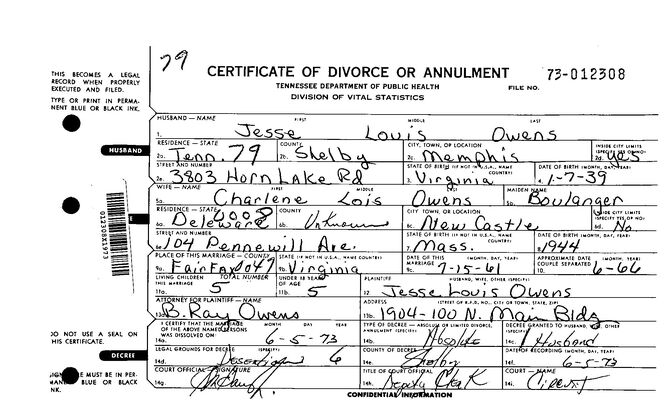 79
CERTIFICATE OF DIVORCE OR ANNULMENT 73-012308
TENNESSEE DEPARTMENT OF PUBLIC HEALTH FILE NO.
DIVISION OF VITAL STATISTICS
THIS BECOMES A LEGAL
RECORD WHEN PROPERLY
EXECUTED AND FILED.
TYPE OR PRINT IN PERMA-
NENT BLUE OR BLACK INK.
HUSBAND — NAME FIRST MIDDLE LAST
1. Jesse Louis Owens
HUSBAND
RESIDENCE — STATE COUNTY CITY, TOWN, OR LOCATION INSIDE CITY LIMITS
2a. Tenn. 79 2b. Shelby 2c. Memphis 2d. yes
STREET AND NUMBER STATE OF BIRTH (IF NOT IN U.S.A., NAME COUNTRY) DATE OF BIRTH (MONTH, DAY, YEAR)
2e. 3803 Horn Lake Rd 3. Virginia 4. 1-7-39
WIFE — NAME FIRST MIDDLE LAST MAIDEN NAME
5a. Charlene Lois Owens 5b. Boulanger
RESIDENCE — STATE COUNTY CITY, TOWN, OR LOCATION INSIDE CITY LIMITS
6a. Deleware 6b. Unknown 6c. New Castle 6d. No
STREET AND NUMBER STATE OF BIRTH (IF NOT IN U.S.A., NAME COUNTRY) DATE OF BIRTH (MONTH, DAY, YEAR)
104 Pennewill Ave. 7. Mass. 8. 1944
PLACE OF THIS MARRIAGE — COUNTY STATE (IF NOT IN U.S.A., NAME COUNTRY) DATE OF THIS MARRIAGE (MONTH, DAY, YEAR) APPROXIMATE DATE COUPLE SEPARATED (MONTH, DAY, YEAR)
9a. Fairfax 047 9b. Virginia 9c. 7-15-61 10. 6-66
LIVING CHILDREN THIS MARRIAGE TOTAL NUMBER UNDER 18 YEARS OF AGE PLAINTIFF HUSBAND, WIFE, OTHER (SPECIFY)
11a. 5 11b. 5 12. Jesse Louis Owens
ATTORNEY FOR PLAINTIFF — NAME ADDRESS (STREET OR R.F.D. NO., CITY OR TOWN, STATE, ZIP)
B. Ray Owens 13b. 1904-100 N. Main Bldg
DO NOT USE A SEAL ON
THIS CERTIFICATE.
I CERTIFY THAT THE MARRIAGE OF THE ABOVE NAMED PERSONS WAS DISSOLVED ON MONTH DAY YEAR TYPE OF DECREE — ABSOLUTE OR LIMITED DIVORCE, ANNULMENT (SPECIFY) DECREE GRANTED TO HUSBAND, OTHER (SPECIFY)
6-5-73 14b. Absolute 14c. Husband
DECREE
LEGAL GROUNDS FOR DECREE (SPECIFY) COUNTY OF DECREE DATE OF RECORDING (MONTH, DAY, YEAR)
14d. Desertion 6 Shelby 6-5-73
COURT OFFICIAL — SIGNATURE TITLE OF COURT OFFICIAL COURT —
14h. Deputy Clerk 14i. Circuit
MUST BE IN PER-
BLUE OR BLACK
NK.
CONFIDENTIAL INFORMATION